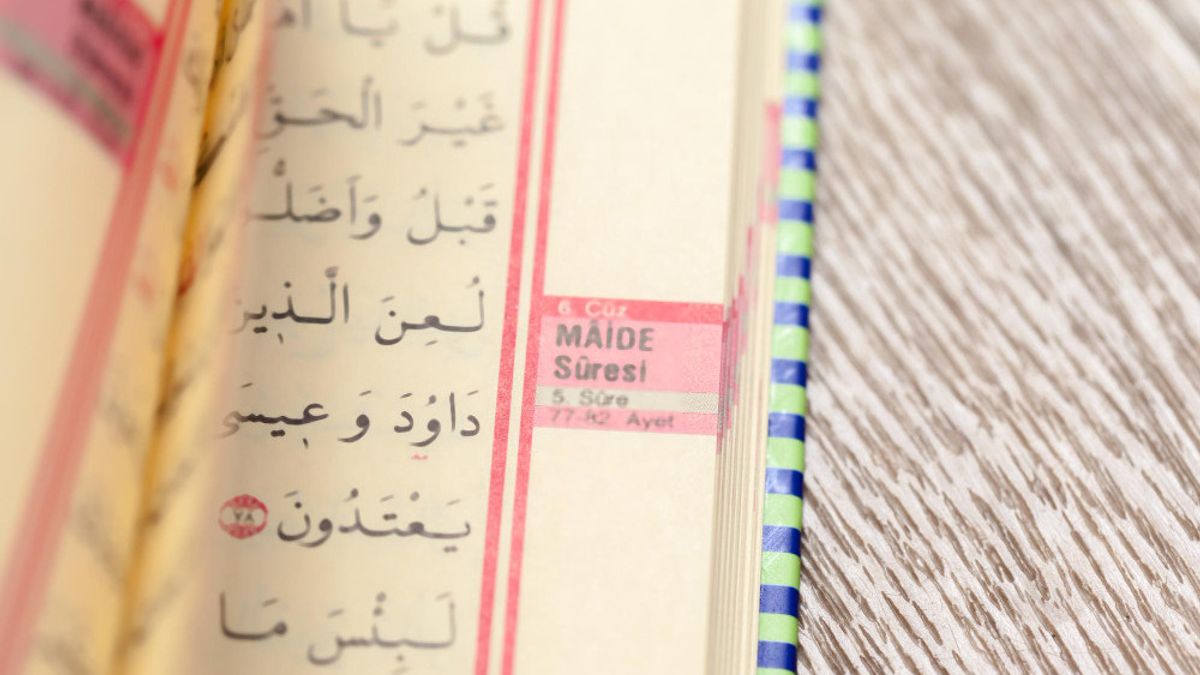 قُلْ يَا
غَيْرَ الْحَقِّ
قَبْلُ وَاَضَلُّ
لُعِنَ الَّذ۪ينَ
دَاوُ۫دَ وَع۪يسَى
يَعْتَدُونَ ﴿٧٨﴾
لَبِئْسَ مَا
6. Cüz
MÂİDE
Sûresi
5. Sûre
77-82. Ayet